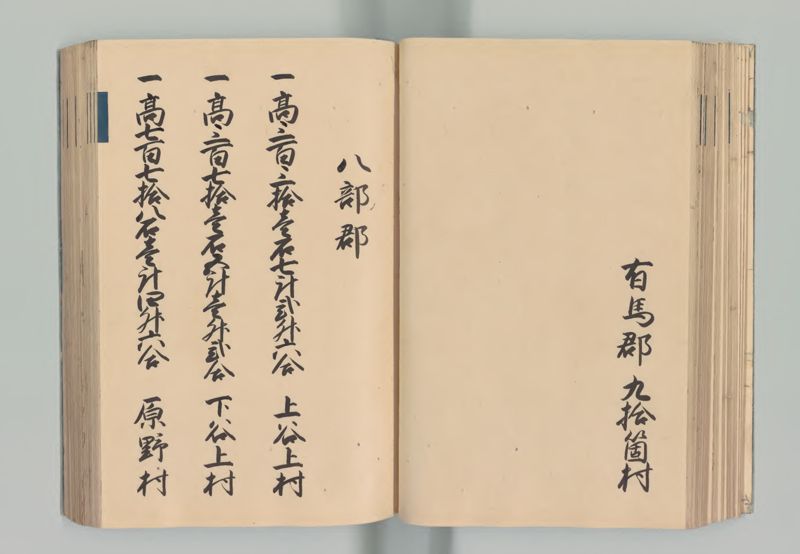 有馬郡 九拾箇村
八部郡
一 高三百三拾壱石七斗弐升六合 上谷上村
一 高三百七拾壱石五斗壱升弐合 下谷上村
一 高七百七拾八石壱斗四升六合 原野村